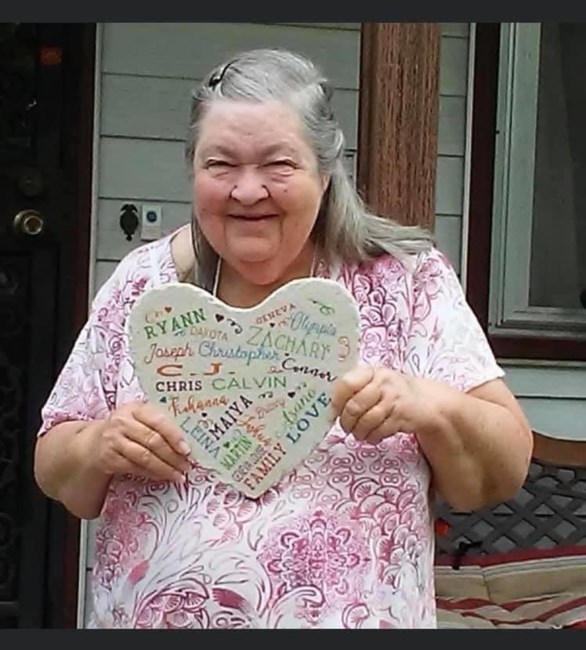 GENEVA
RYANN
Olympia
DAKOTA
ZACHARY
Joseph Christopher
C.J.
Connor
CHRIS CALVIN
MAIYA
LOVE
LEINA
MARTIN
FAMILY